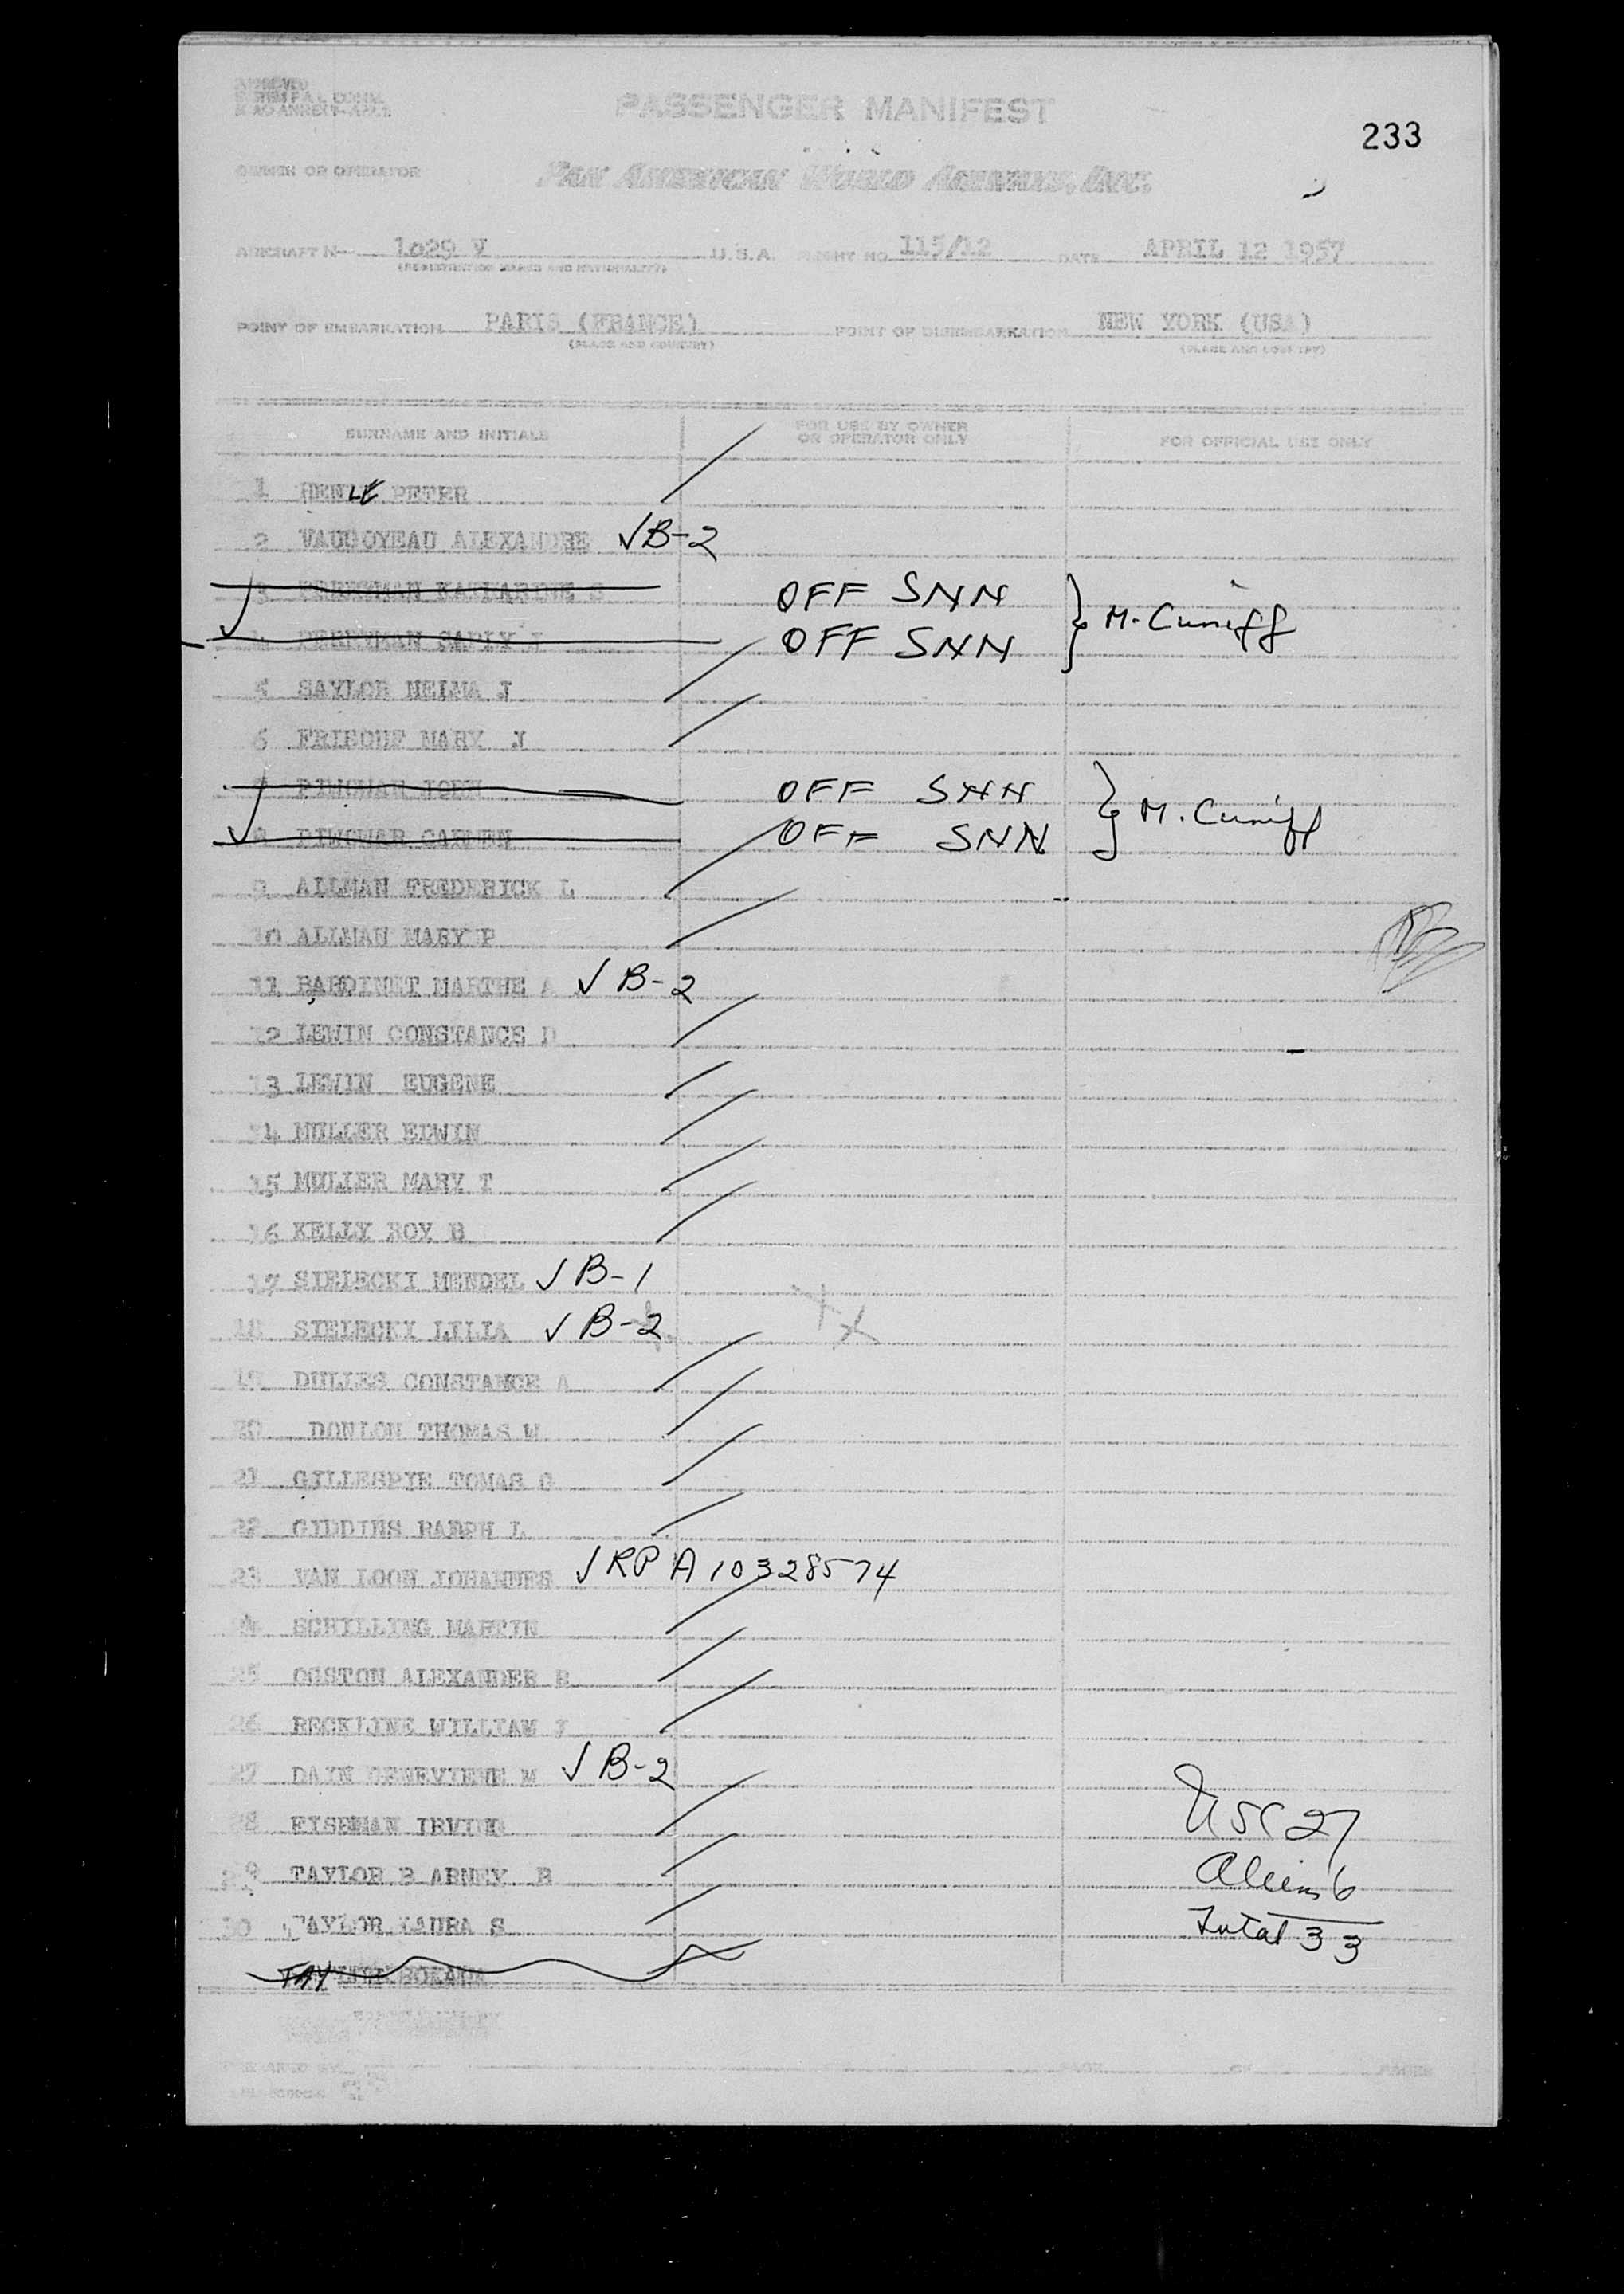 PASSENGER MANIFEST
233
OWNER OR OPERATOR PAN AMERICAN WORLD AIRWAYS, INC.
AIRCRAFT N— 1029 V U.S.A. FLIGHT NO. 115/12 DATE APRIL 12 1957
(REGISTRATION MARKS AND NATIONALITY)
POINT OF EMBARKATION PARIS (FRANCE) POINT OF DISEMBARKATION NEW YORK (USA)
(PLACE AND COUNTRY) (PLACE AND COUNTRY)
SURNAME AND INITIALS FOR USE BY OWNER OR OPERATOR ONLY FOR OFFICIAL USE ONLY
1 HENLE PETER
2 ALEXANDRE √ B-2
3 PERRYMAN KATHARINE S OFF SNN } M. Cuniff
4 PERRYMAN OFF SNN
5 SAYLOR J
6 MARY J
7 JOHN OFF SNN } M. Cuniff
8 CARMEN OFF SNN
9 ALLMAN FREDERICK L
10 ALLMAN MARY P
11 BARDINET MARTHE A √ B-2
12 LEWIN CONSTANCE D
13 LEWIN EUGENE
14 MULLER EDWIN
15 MULLER MARY T
16 KELLY ROY B
17 SIELECKI MENDEL √ B-1
18 SIELECKI LILIA √ B-2
19 DULLES CONSTANCE A
20 DONLON THOMAS W
21 GILLESPIE TOMAS G
22 GIDDINS RALPH L
23 VAN LOON JOHANNES √ RP A10328574
24 SCHILLING MARTIN
25 OGSTON ALEXANDER
26 BECKLINE WILLIAM J
27 DAIN GENEVIEVE M √ B-2
28 EISEMAN IRVING
29 TAYLOR B ARNEY B
30 TAYLOR LAURA S
TAY
USC 27
Aliens 6
Total 33
PREPARED BY PAGE OF PAGES